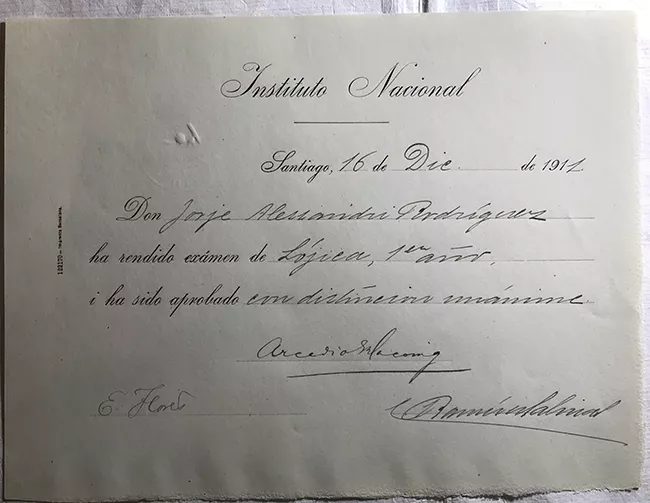 Instituto Nacional
Santiago, 16 de Dic de 1911
Don Jorje Alessandri Rodríguez
ha rendido exámen de Lójica, 1er año,
i ha sido aprobado con distincion unánime
Arcadio
E. Flores
Ramírez Salinas